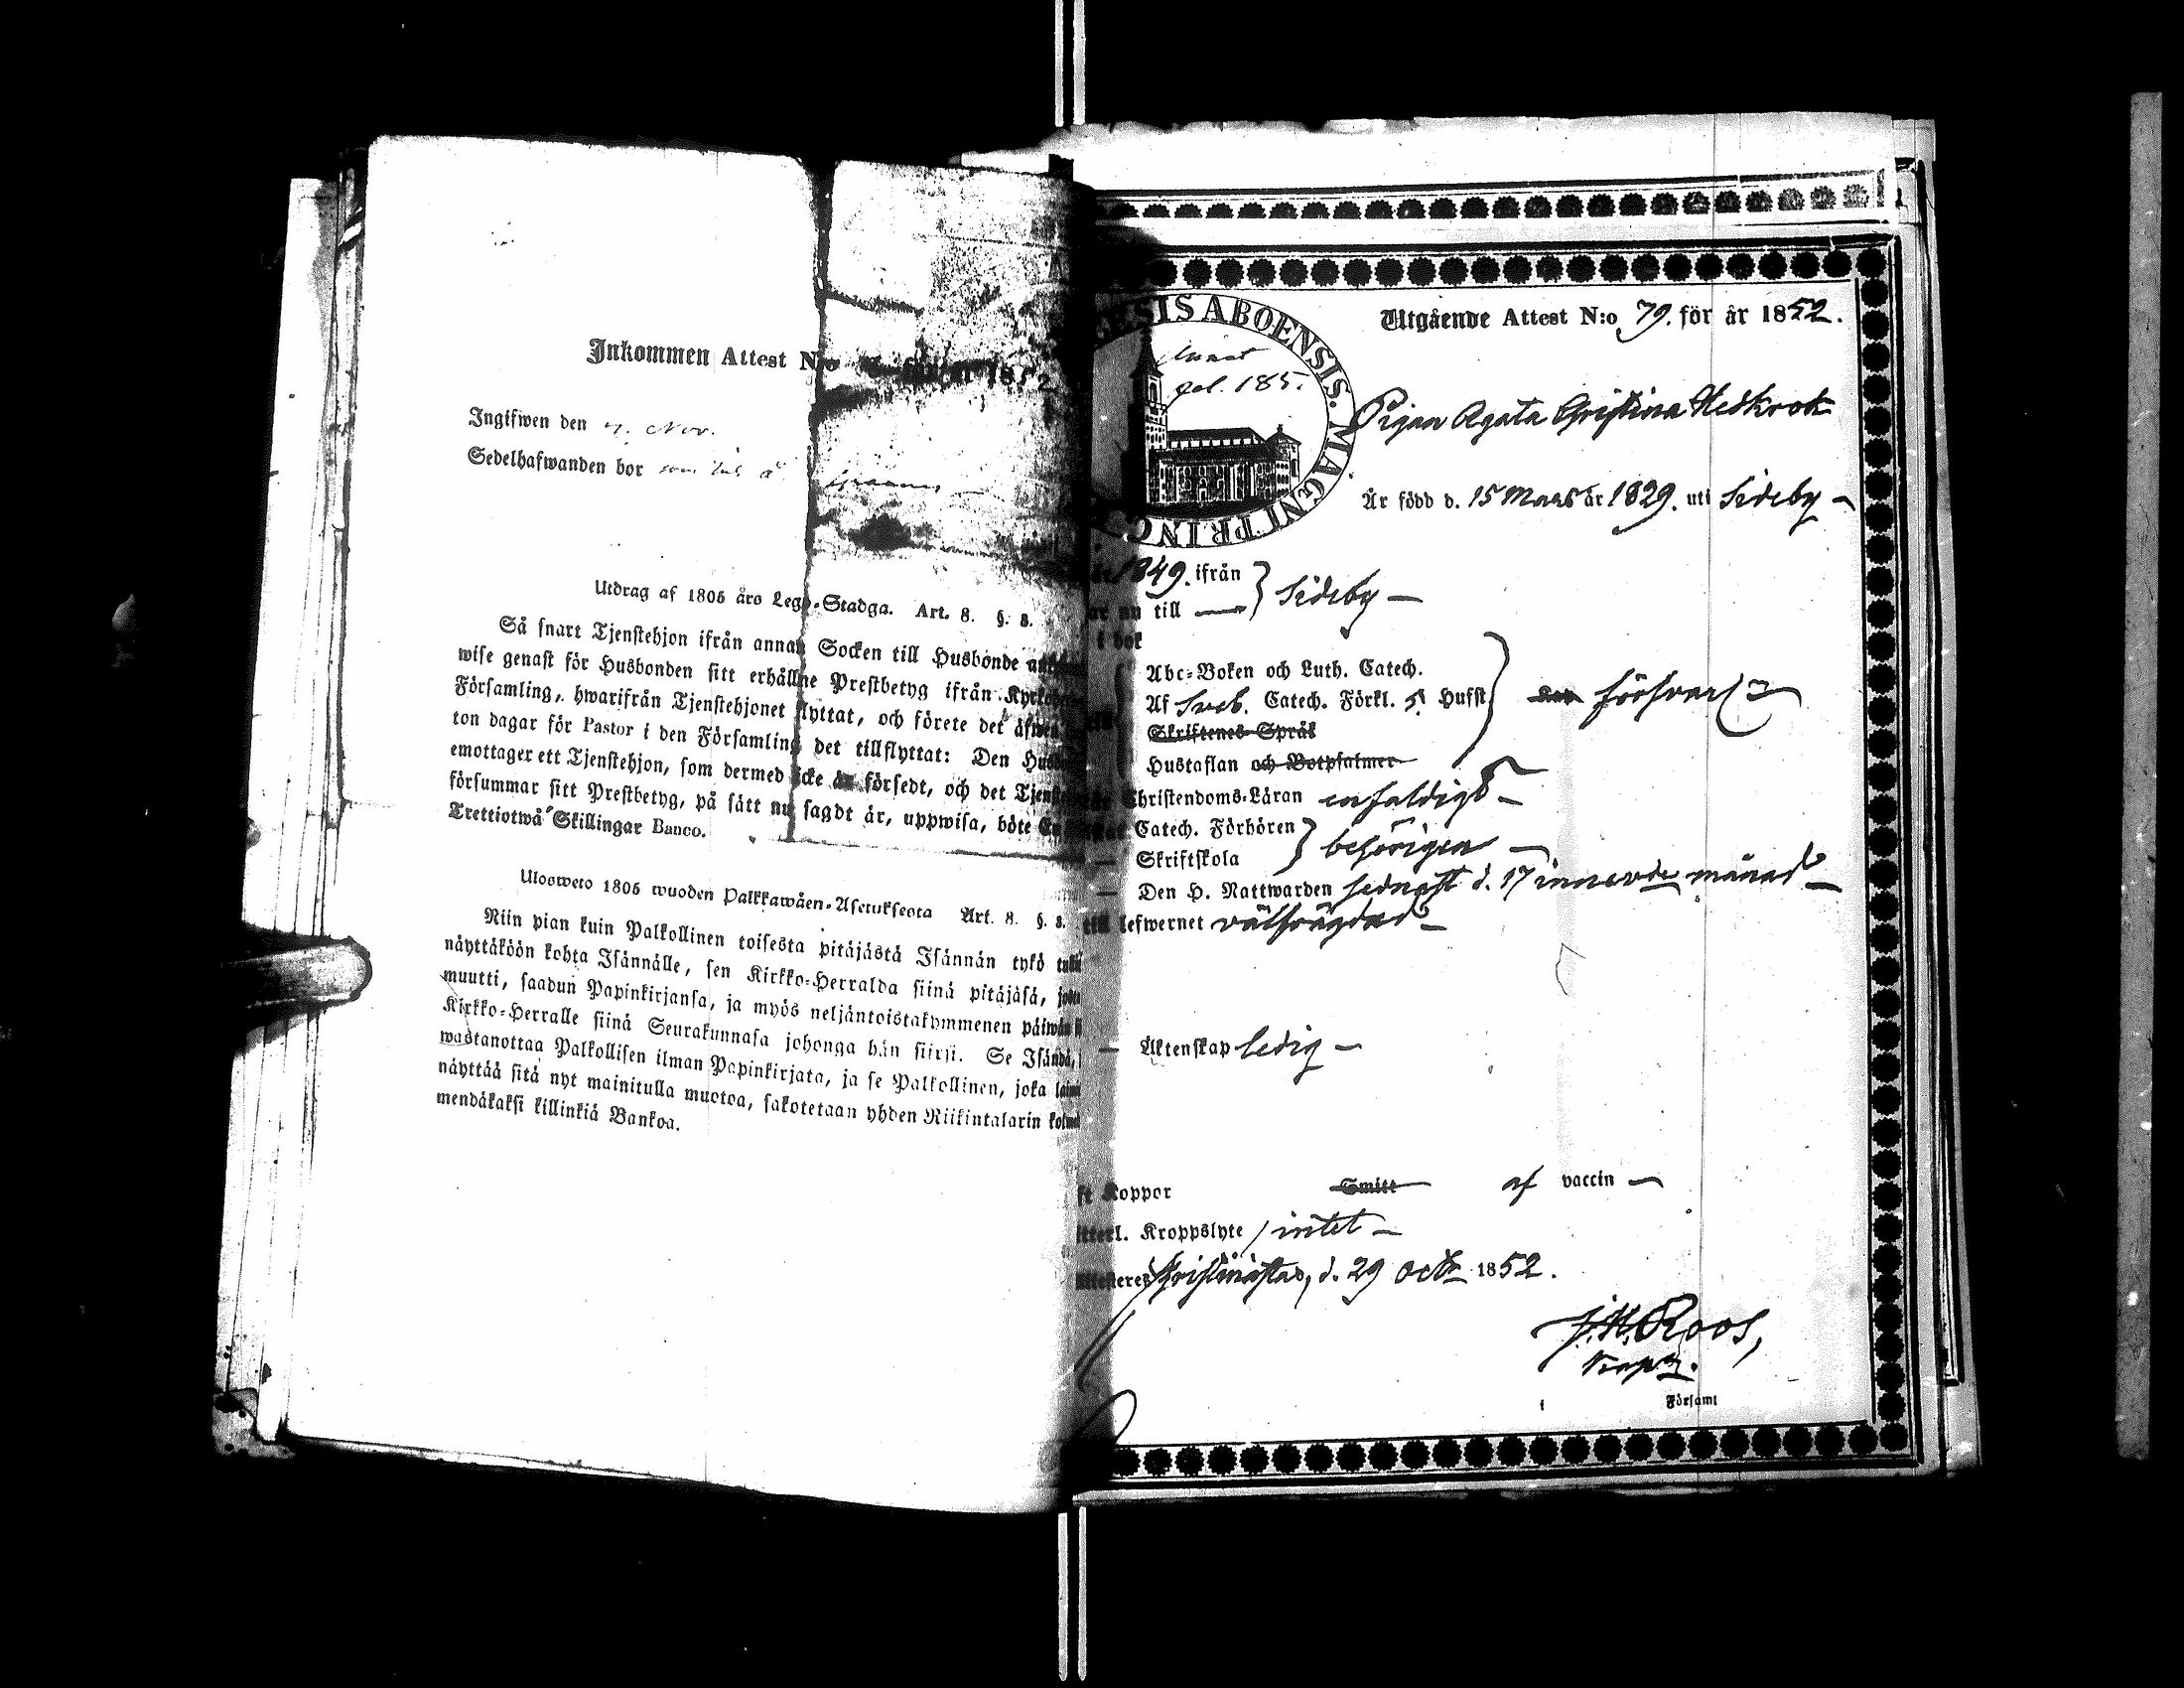 Inkommen Attest N:o 1852
Ingifwen den Nov.
Sedelhafwanden bor
Utdrag af 1805 års Lego-Stadga. Art. 8. §. 8.
Så snart Tjenstehjon ifrån annan Socken till Husbonde
wise genast för Husbonden sitt erhållne Prestbetyg ifrån
Församling, hwarifrån Tjenstehjonet flyttat, och förete det äfwen
ton dagar för Pastor i den Församling det tillflyttat: Den
emottager ett Tjenstehjon, som dermed icke är försedt, och det
försummar sitt Prestbetyg, på sätt nu sagdt är, uppwisa, böte
Trettiotwå Skillingar Banco.
Ulosweto 1805 wuoden Palkkawäen-Asetuksesta Art. 8. §. 8.
Niin pian kuin Palkollinen toisesta pitäjästä Isännän tykö
näyttäköön kohta Isännälle, sen Kirkko-Herralda siinä pitäjäsä,
muutti, saadun Papinkirjansa, ja myös neljäntoistakymmenen päiwän
Kirkko-Herralle siinä Seurakunnasa johonga hän siirsi. Se Isändä,
wastanottaa Palkollisen ilman Papinkirjata, ja se Palkollinen, joka
näyttää sitä nyt mainitulla muotoa, sakotetaan yhden Riikintalarin
mendäkaksi killinkiä Bankoa.
SIS ABOENSIS. MAGNI PRINC
pol. 185.
Utgående Attest N:o 79. för år 1852.
Pigan Agata Cristina Hedkrok
Är född d. 15 Mars år 1829. uti Sideby
1849. ifrån
nu till Sideby
i bok
Abc-Boken och Luth. Catech.
Af Sveb. Catech. Förkl. 5 Hufst försvarl.
Skriftenes Språk
Hustaflan och Botpsalmer
Christendoms-Läran enfaldigt
Catech. Förhören
Skriftskola behörigen
Den H. Nattwarden sednast d. 17 innevde månad
till lefwernet välfrägdad
Äktenskap ledig
Koppor Smitt af vaccin
Kroppslyte intet
Kristinestad, d. 29 Octr 1852.
J. H. Roos,
i Församl